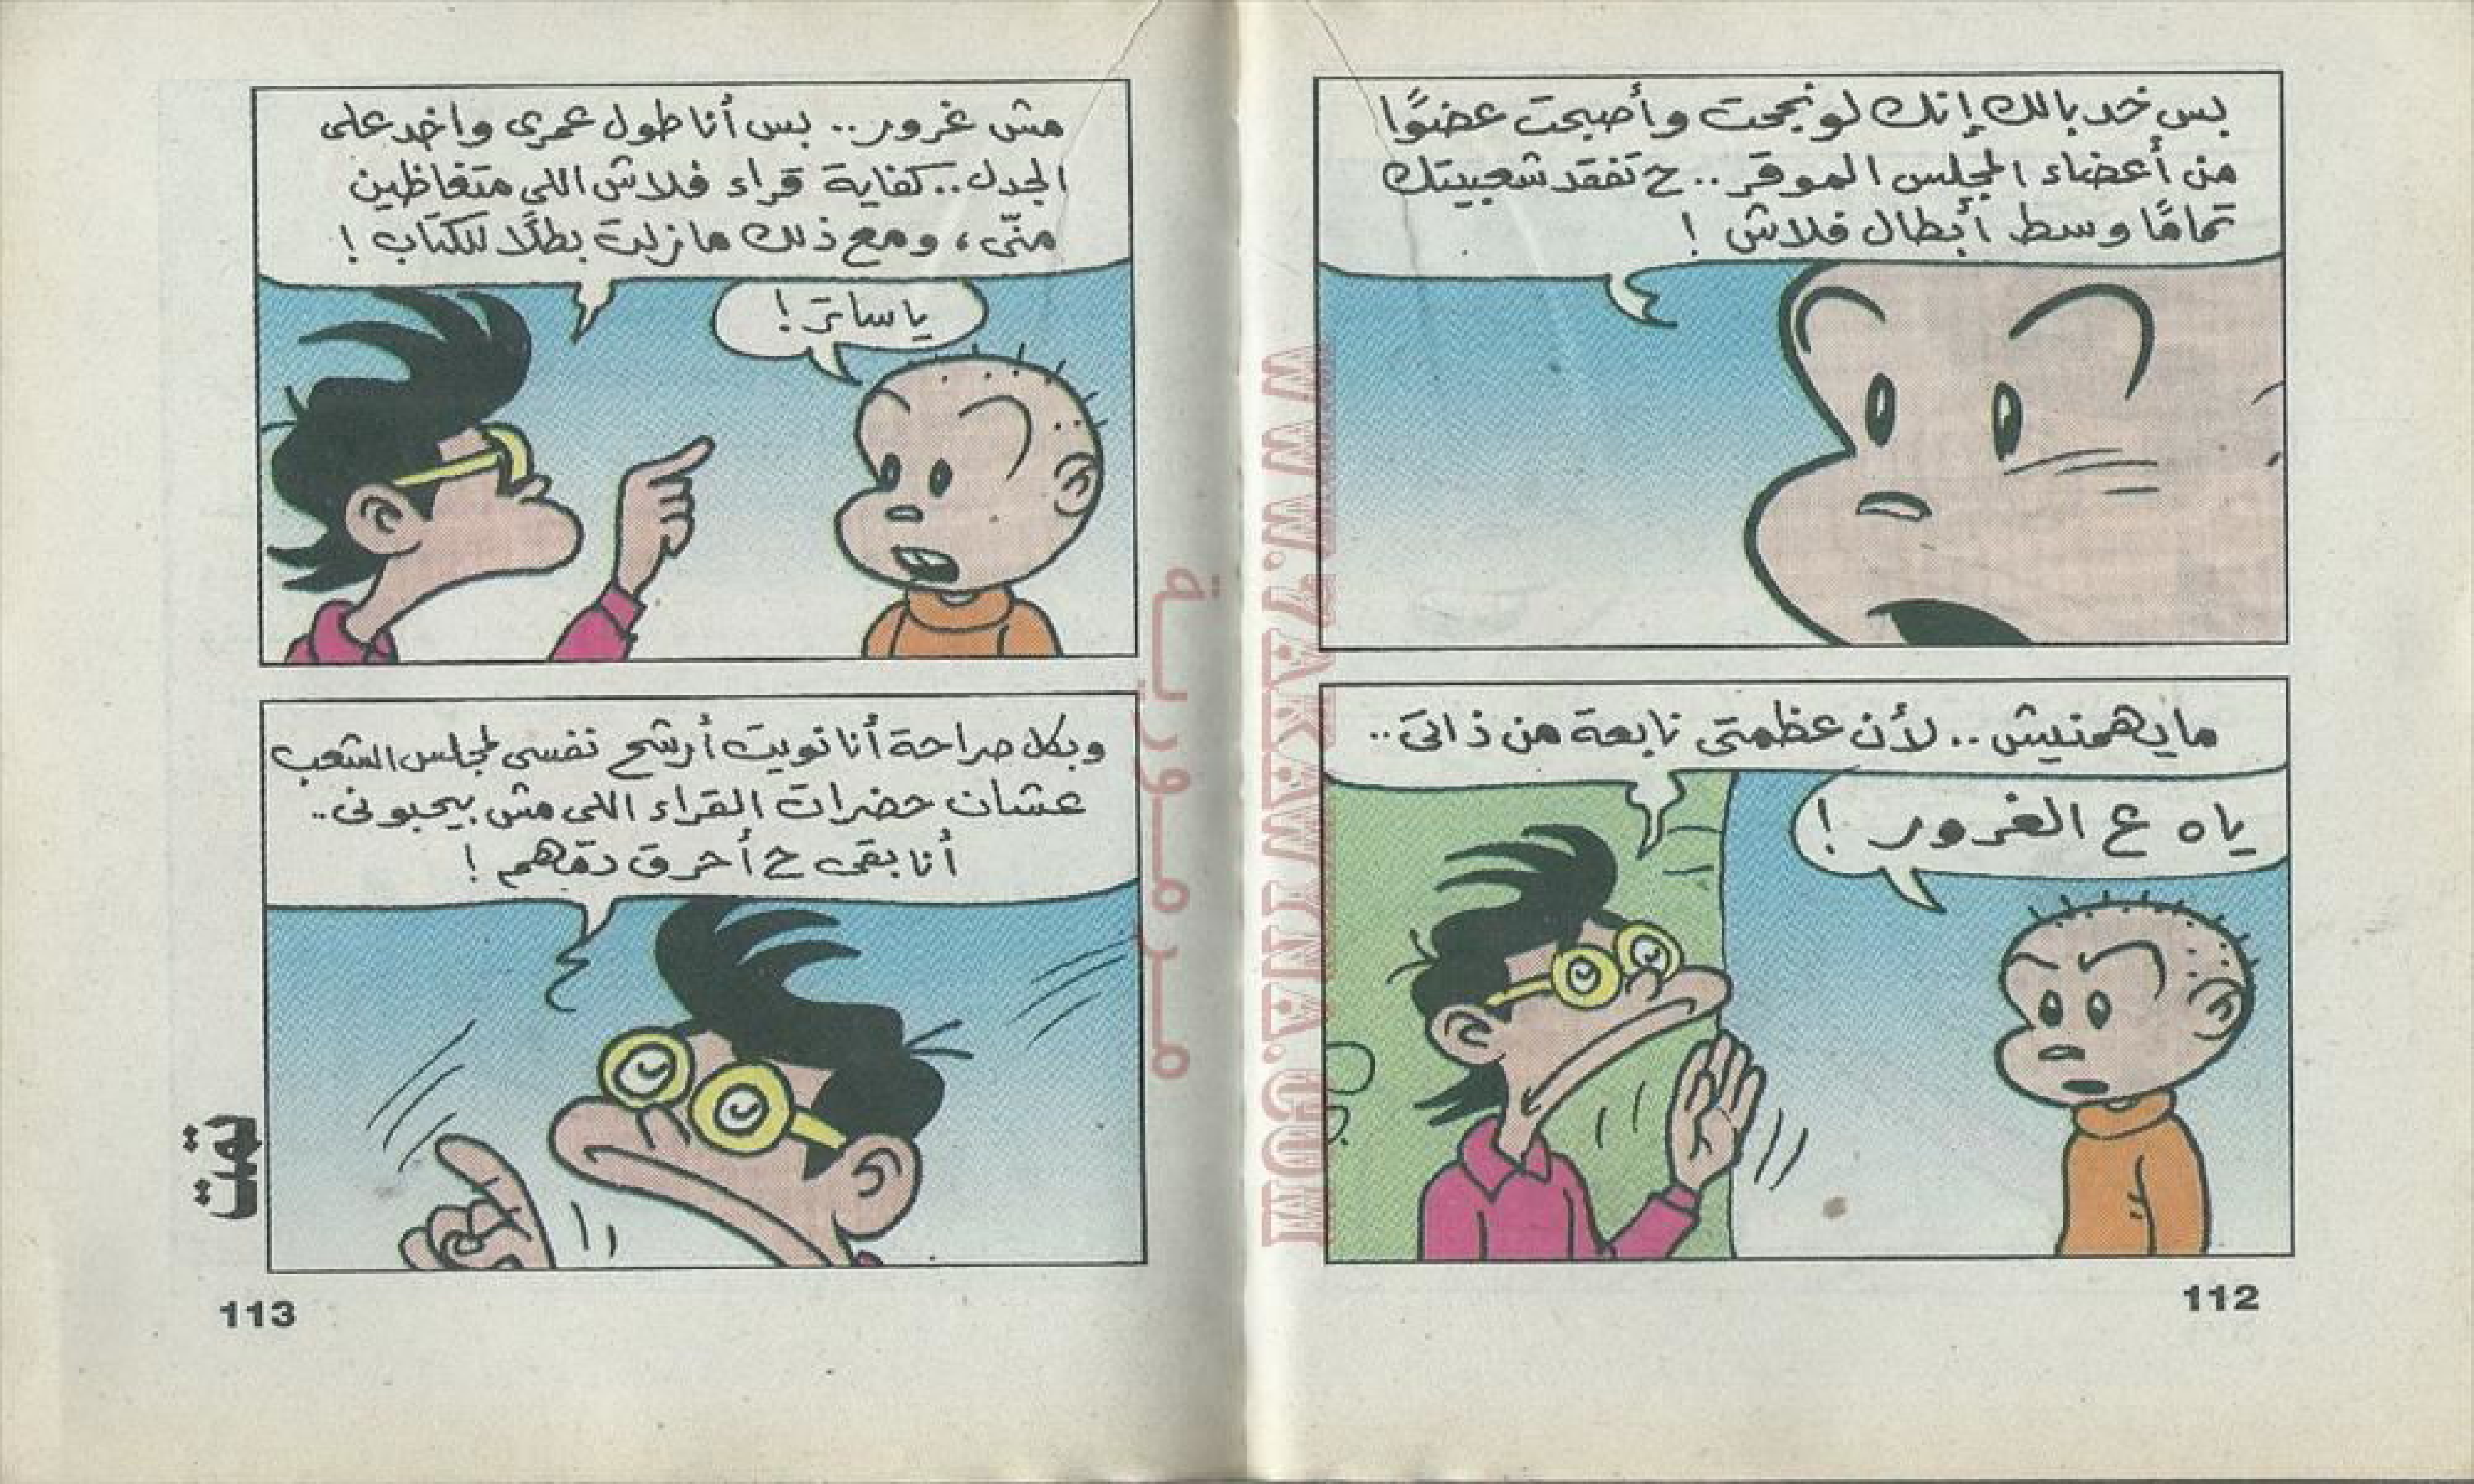 بس خد بالك إنك لو نجحت وأصبحت عضوًا
من أعضاء المجلس الموقر.. ح تفقد شعبيتك
تمامًا وسط أبطال فلاش !
مايهمنيش.. لأن عظمتى نابعة من ذاتى..
ياه ع الغرور !
112
مش غرور.. بس أنا طول عمرى واخد على
الجدل.. كفاية قراء فلاش اللى متغاظين
منّى، ومع ذلك مازلت بطلًا للكتاب !
ياساتر !
وبكل صراحة أنا نويت أرشح نفسى لمجلس الشعب
عشان حضرات القراء اللى مش بيحبونى..
أنا بقى ح أحرق دمّهم !
تمت
113
مرمورية
WWW.7AKAWYNA.COM